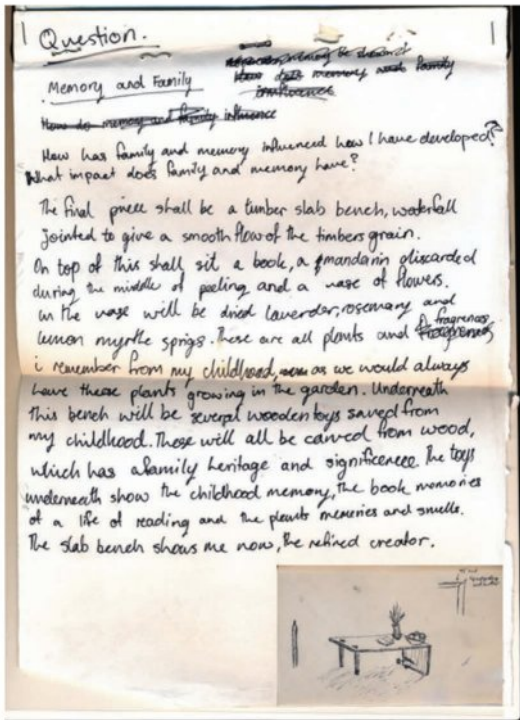 Question.
Memory and Family
How does memory and family
influence
How do memory and family influence
How has family and memory influenced how I have developed?
What impact does family and memory have?
The final piece shall be a timber slab bench, waterfall
jointed to give a smooth flow of the timbers grain.
On top of this shall sit a book, a mandarin discarded
during the middle of peeling and a vase of flowers.
In the vase will be dried lavender, rosemary and
lemon myrtle sprigs. These are all plants and fragrences
i remember from my childhood, as we would always
have these plants growing in the garden. Underneath
this bench will be several wooden toys saved from
my childhood. These will all be carved from wood,
which has a family heritage and significence. The toys
underneath show the childhood memory, the book memories
of a life of reading and the plants memories and smells.
The slab bench shows me now, the refined creator.